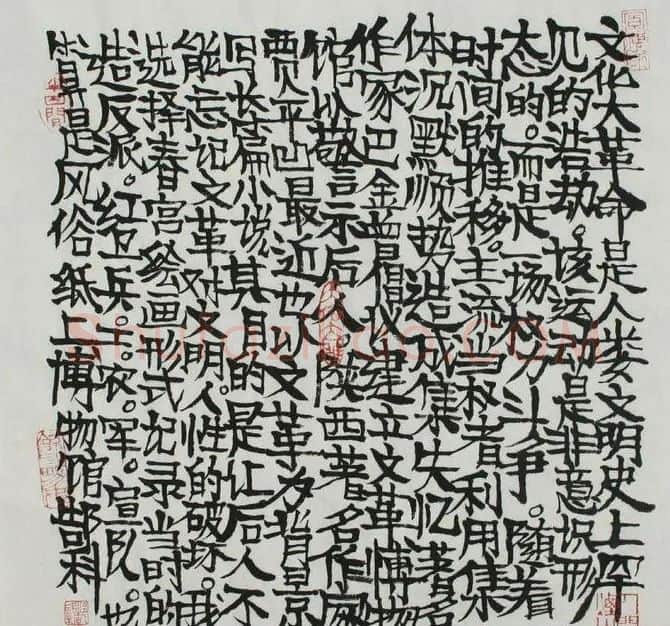 文化大革命是人类文明史上罕
见的浩劫。该运动是非意识形
态的。而是一场权力斗争。随着
时间的推移。主流当权者利用集
体沉默顺势造成集失忆著名
作家巴金曾倡议建立文革博物
馆以警示后人陕西著名作家
贾平凹最近也以文革为背景
写长篇小说其目的是让后人不
能忘记文革对文明人性的破坏。我
选择春宫绘画形式记录当时的
造反派。红卫兵。工农。军。宣队。也
算是风俗纸上博物馆邵科
Shufaziliao.COM